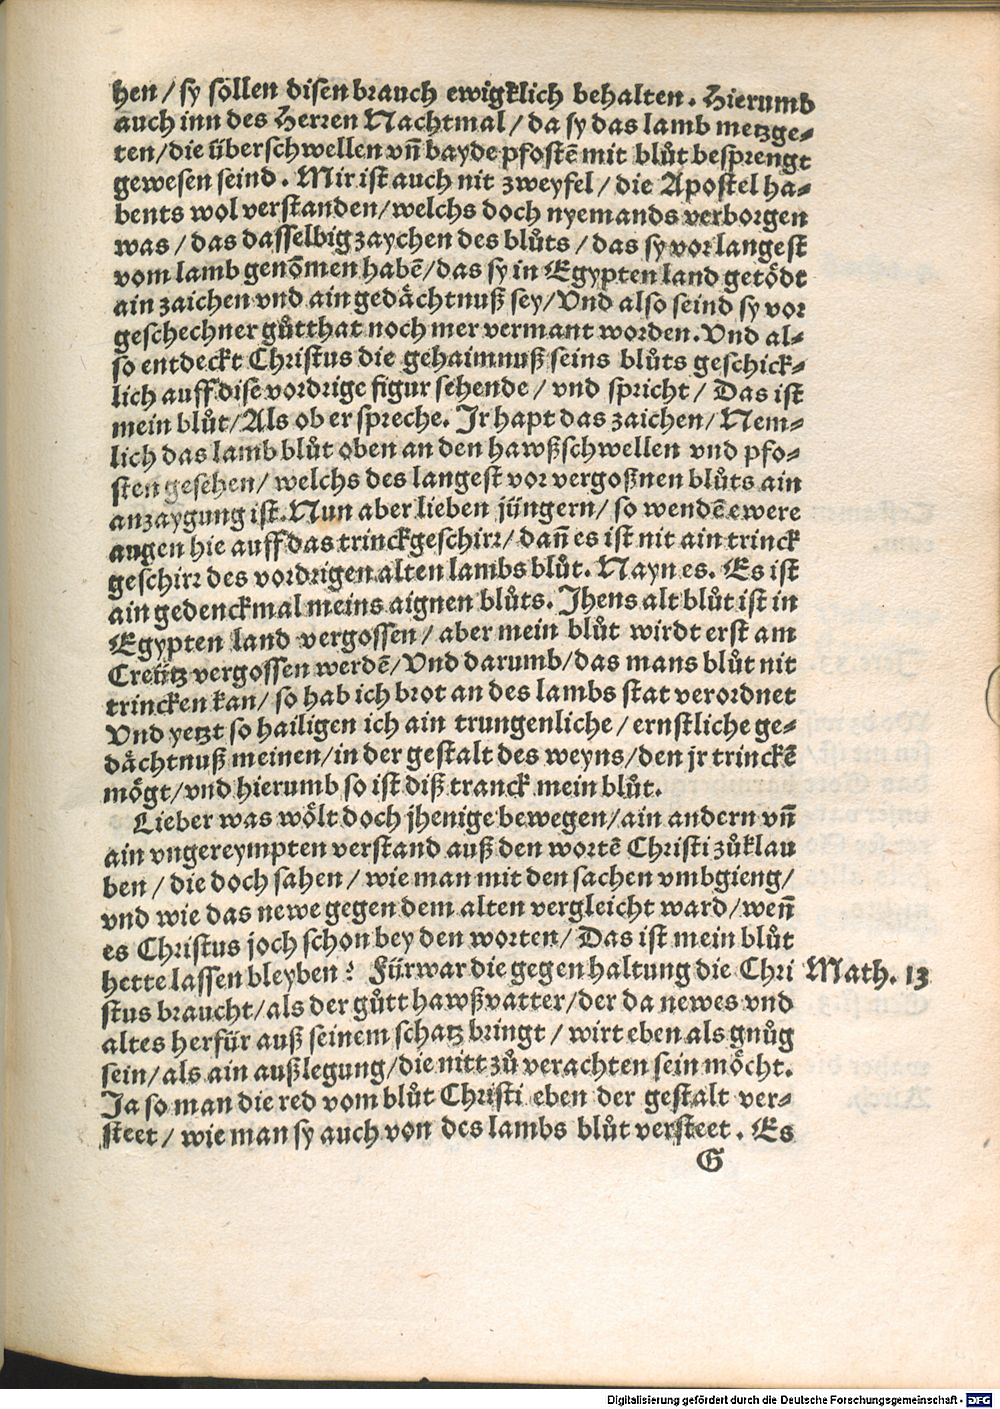 hen / sy söllen disen brauch ewigklich behalten. Hierumb
auch inn des Herren Nachtmal / da sy das lamb metzge⸗
ten / die überschwellen vñ bayde pfostẽ mit blůt besprengt
gewesen seind. Mir ist auch nit zweyfel / die Apostel ha⸗
bents wol verstanden / welchs doch nyemands verborgen
was / das dasselbig zaychen des blůts / das sy vor langest
vom lamb genõmen habẽ / das sy in Egypten land getödt
ain zaichen vnd ain gedächtnuß sey / Vnd also seind sy vor
geschechner gůtthat noch mer vermant worden. Vnd al⸗
so entdeckt Christus die gehaimnuß seins blůts geschick⸗
lich auff dise vordrige figur sehende / vnd spricht / Das ist
mein blůt / Als ob er spreche. Jr hapt das zaichen / Nem⸗
lich das lamb blůt oben an den hawßschwellen vnd pfo⸗
sten gesehen / welchs des langest vor vergoßnen blůts ain
anzaygung ist. Nun aber lieben jüngern / so wendẽ ewere
augen hie auff das trinckgeschirr / dañ es ist nit ain trinck
geschirr des vordrigen alten lambs blůt. Nayn es. Es ist
ain gedenckmal meins aignen blůts. Jhens alt blůt ist in
Egypten land vergossen / aber mein blůt wirdt erst am
Creütz vergossen werdẽ / Vnd darumb / das mans blůt nit
trincken kan / so hab ich brot an des lambs stat verordnet
Vnd yetzt so hailigen ich ain trungenliche / ernstliche ge⸗
dächtnuß meinen / in der gestalt des weyns / den jr trinckẽ
mögt / vnd hierumb so ist diß tranck mein blůt.
Lieber was wölt doch jhenige bewegen / ain andern vñ
ain vngereympten verstand auß den wortẽ Christi zůklau
ben / die doch sahen / wie man mit den sachen vmbgieng /
vnd wie das newe gegen dem alten vergleicht ward / weñ
es Christus joch schon bey den worten / Das ist mein blůt
hette lassen bleyben? Fürwar die gegenhaltung die Chri
Math. 13
stus braucht / als der gůtt hawßvatter / der da newes vnd
altes herfür auß seinem schatz bringt / wirt eben als gnůg
sein / als ain außlegung / die nitt zů verachten sein möcht.
Ja so man die red vom blůt Christi eben der gestalt ver⸗
steet / wie man sy auch von des lambs blůt versteet. Es
G
Digitalisierung gefördert durch die Deutsche Forschungsgemeinschaft - DFG